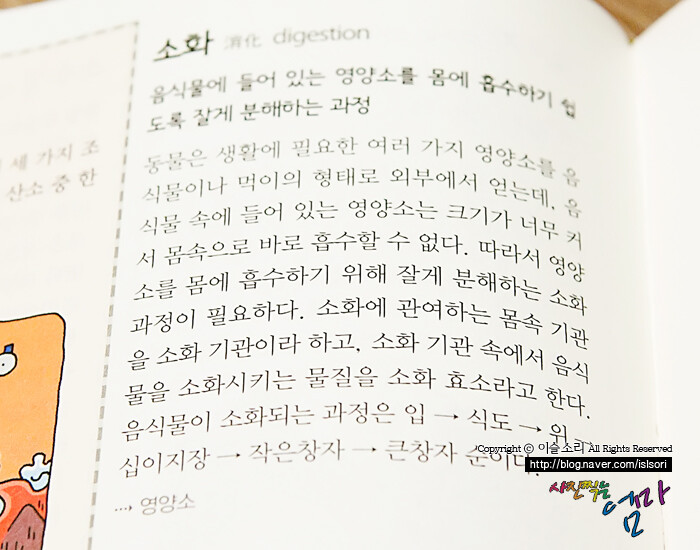 소화 消化 digestion
음식물에 들어 있는 영양소를 몸에 흡수하기 쉽
도록 잘게 분해하는 과정
동물은 생활에 필요한 여러 가지 영양소를 음
식물이나 먹이의 형태로 외부에서 얻는데, 음
식물 속에 들어 있는 영양소는 크기가 너무 커
서 몸속으로 바로 흡수할 수 없다. 따라서 영양
소를 몸에 흡수하기 위해 잘게 분해하는 소화
과정이 필요하다. 소화에 관여하는 몸속 기관
을 소화 기관이라 하고, 소화 기관 속에서 음식
물을 소화시키는 물질을 소화 효소라고 한다.
음식물이 소화되는 과정은 입 → 식도 → 위
십이지장 → 작은창자 → 큰창자 순이다.
⋯→ 영양소
세 가지 조
산소 중 한
Copyright ⓒ 이슬소리 All Rights Reserved
http://blog.naver.com/islsori
사진찍는 엄마